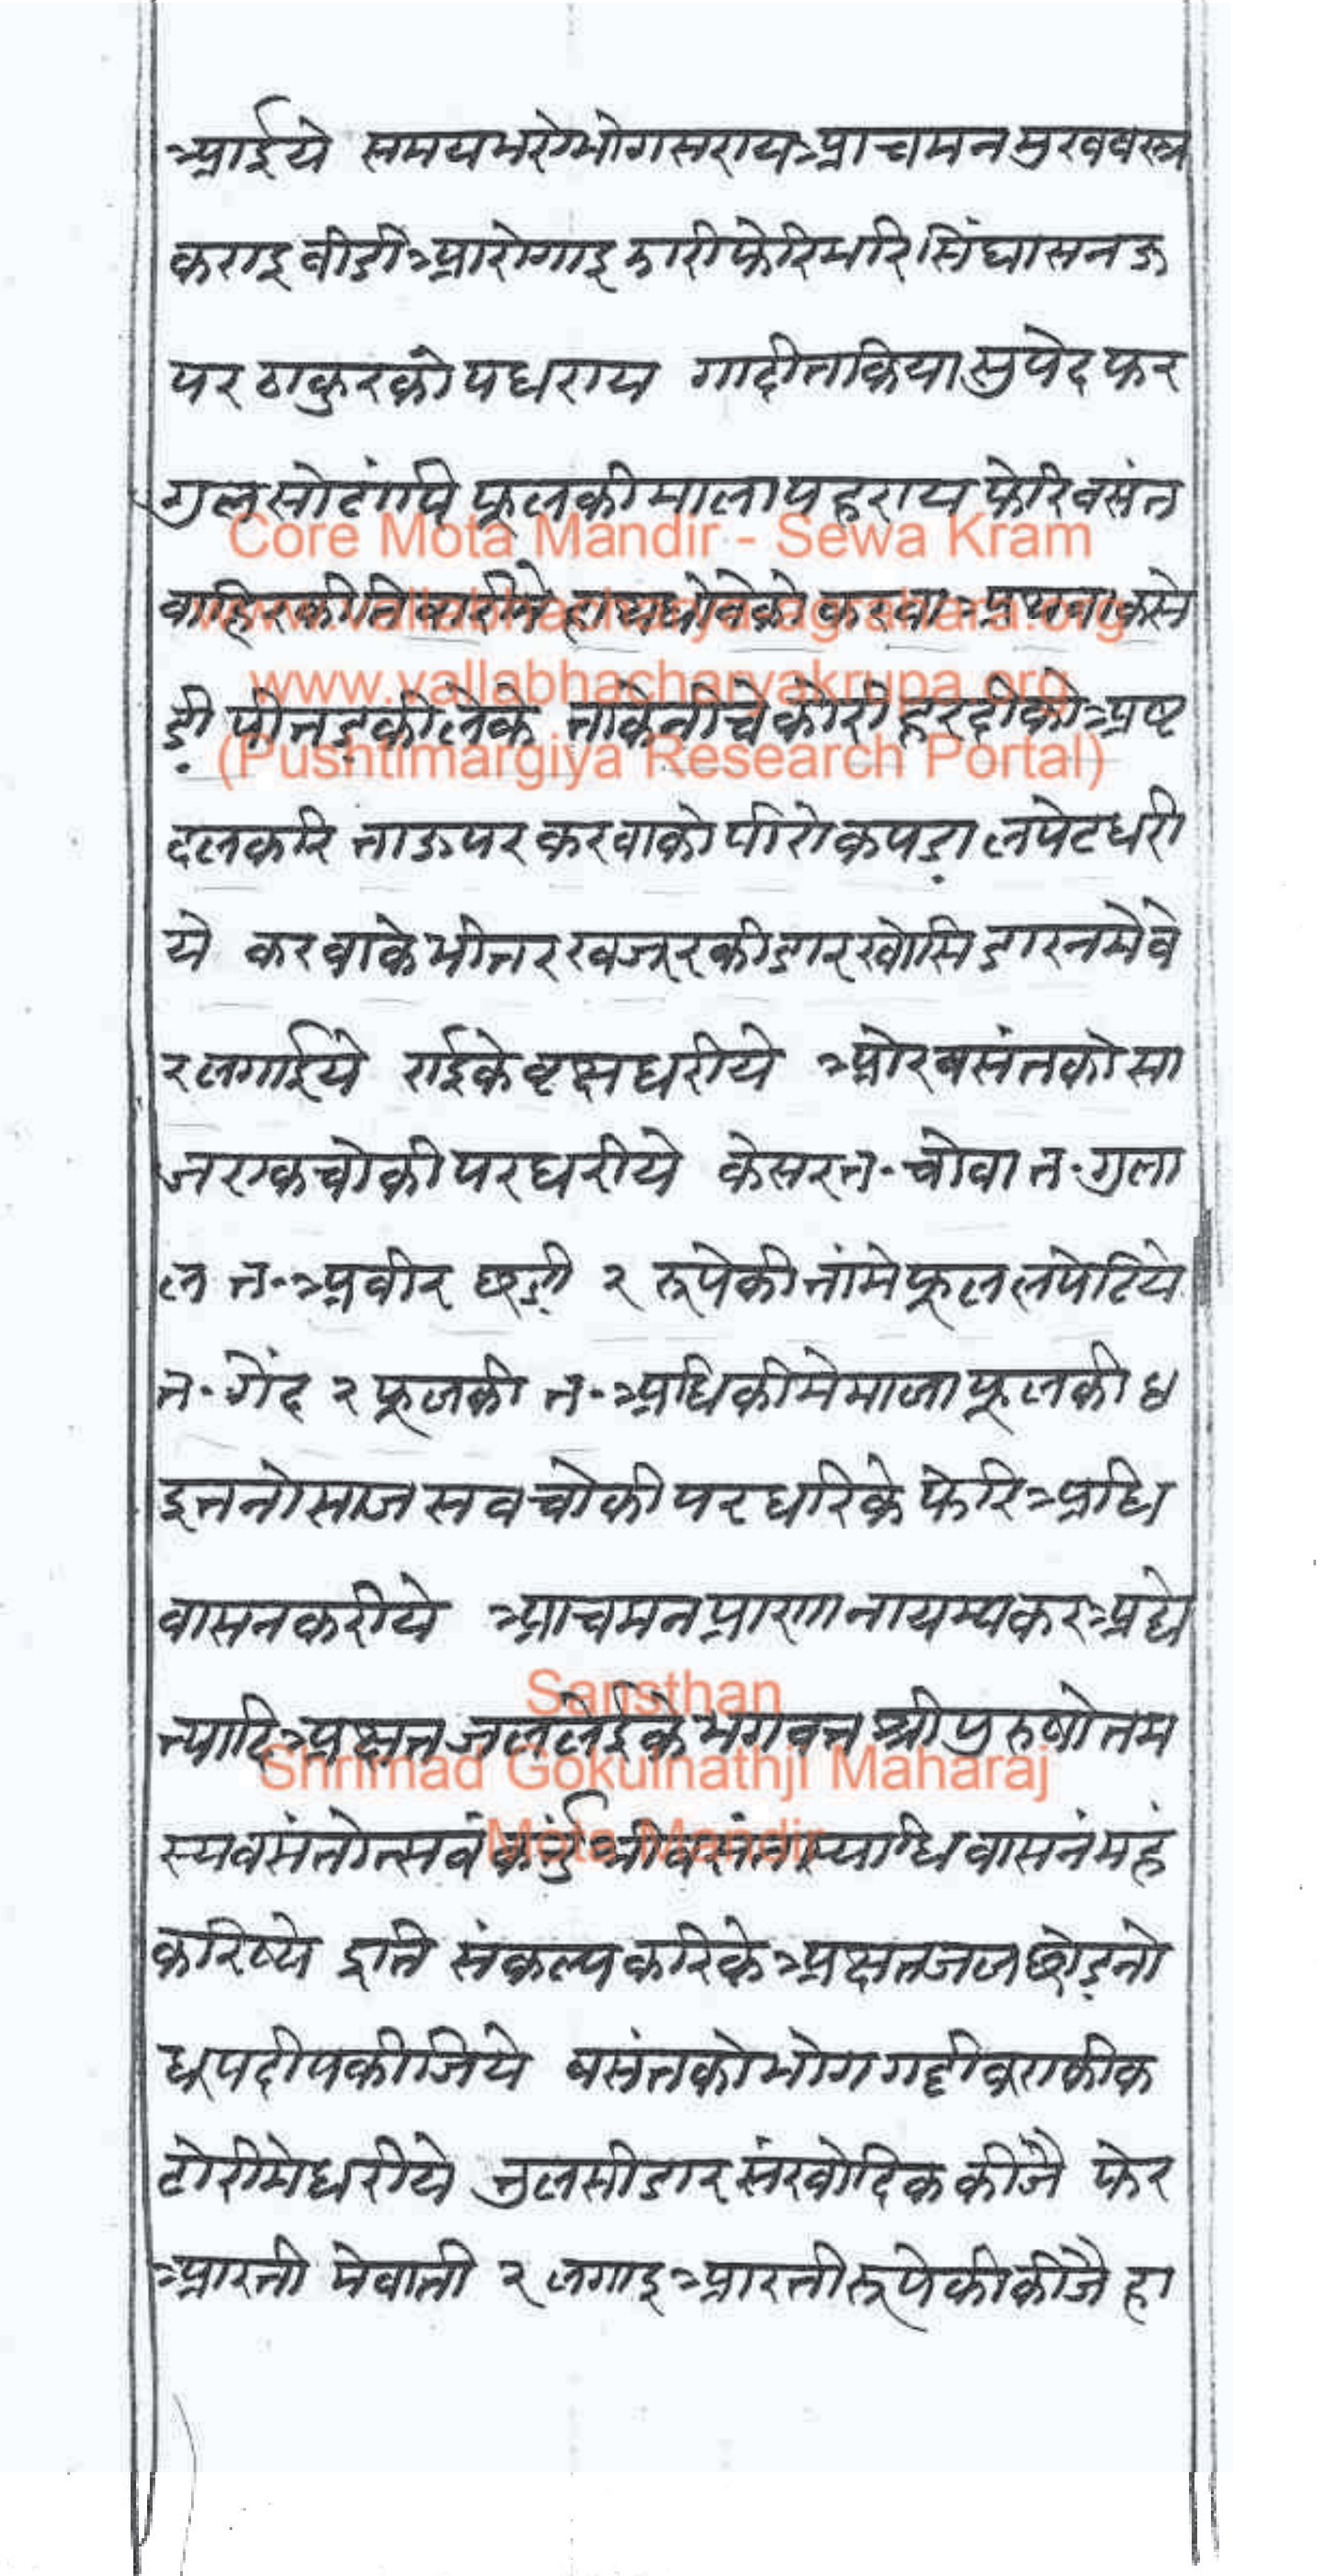 आईये समयभरे भोगसराय आचमन मुखवस्त्र
कराइ बीडी आरोगाइ झारी फेरि भरि सिंघासन ऊ
पर ठाकुरको पधराय गादी तकिया सुपेद फर
गुल सोटांपि फूलकी माला पहराय फेरि वसंत
Core Mota Mandir - Sewa Kram
वाहिरकी तिबारीमे हाथधोवेको करवा
www.vallabhacharyakrupa.org
डी पीतड़की लेके ताके नीचे कोरी हरदीको अष्ट
(Pushtimargiya Research Portal)
दलकरि ताऊपर करवाको पीरो कपड़ा लपेट धरी
ये करवाके भीतर खजूरकी डार खोसि डारनमे बे
र लगाईये राईके वृक्ष धरीये ओर बसंतको सा
ज एक चोकी पर धरीये केसर त॰ चोवा त॰ गुला
ल त॰ अबीर छड़ी २ रूपेकी तांमे फूल लपेटिये
त॰ गेंद २ फूलकी त॰ अधिकीमे माला फूलकी ध
इतनो साज सब चोकी पर धरिके फेरि अधि
वासन करीये आचमन प्राणनायम्य कर अद्ये
त्यादि अक्षत जल लेईके भगवत श्री पुरुषोत्तम
Sansthan
Shrimad Gokulnathji Maharaj
Mota Mandir
स्य वसंतोत्सवं कर्तुं श्रीवसंतास्याधिवासनंमहं
करिष्ये इति संकल्प करिके अक्षत जल छोड़नो
धूप दीप कीजिये बसंतको भोग गद्दीबराकी क
टोरीमे धरीये तुलसी डार संखोदिक कीजै फेर
आरती मेवाती २ लगाइ आरती रूपेकी कीजै हा